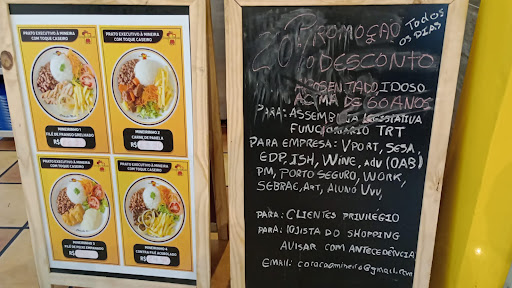 PRATO EXECUTIVO À MINEIRA
COM TOQUE CASEIRO
MINEIRINHO 1
FILÉ DE FRANGO GRELHADO
R$
PRATO EXECUTIVO À MINEIRA
COM TOQUE CASEIRO
MINEIRINHO 2
CARNE DE PANELA
R$
PRATO EXECUTIVO À MINEIRA
COM TOQUE CASEIRO
MINEIRINHO 3
FILÉ DE PEIXE EMPANADO
R$
PRATO EXECUTIVO À MINEIRA
COM TOQUE CASEIRO
MINEIRINHO 4
CONTRA FILÉ ACEBOLADO
R$
PROMOÇÃO TODOS
OS DIAS
DESCONTO
APOSENTADO, IDOSO
ACIMA DE 60 ANOS
PARA: ASSEMBLEIA LEGISLATIVA
FUNCIONÁRIO TRT
PARA EMPRESA: VPORT, SESA,
EDP, ISH, WINE, ADV (OAB)
PM, PORTO SEGURO, WORK,
SEBRAE, ART, ALUNO UVV,
PARA: CLIENTES PRIVILÉGIO
PARA: LOJISTA DO SHOPPING
AVISAR COM ANTECEDÊNCIA
EMAIL: coracaomineiro@gmail.com